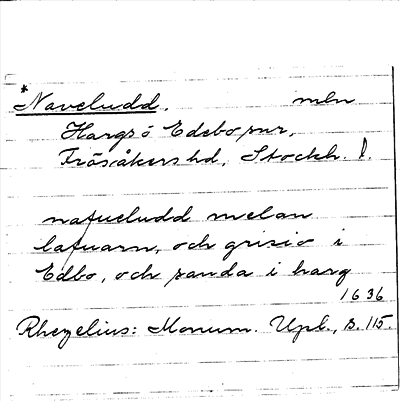 *Naveludd. mln
Hargs o Edebo snr,
Frösåkers hd, Stockh. l.
nafueludd melan
lafuarn, och grisio i
Edbo, och sanda i harg
1636
Rhezelius: Monum. Upl., s. 115.